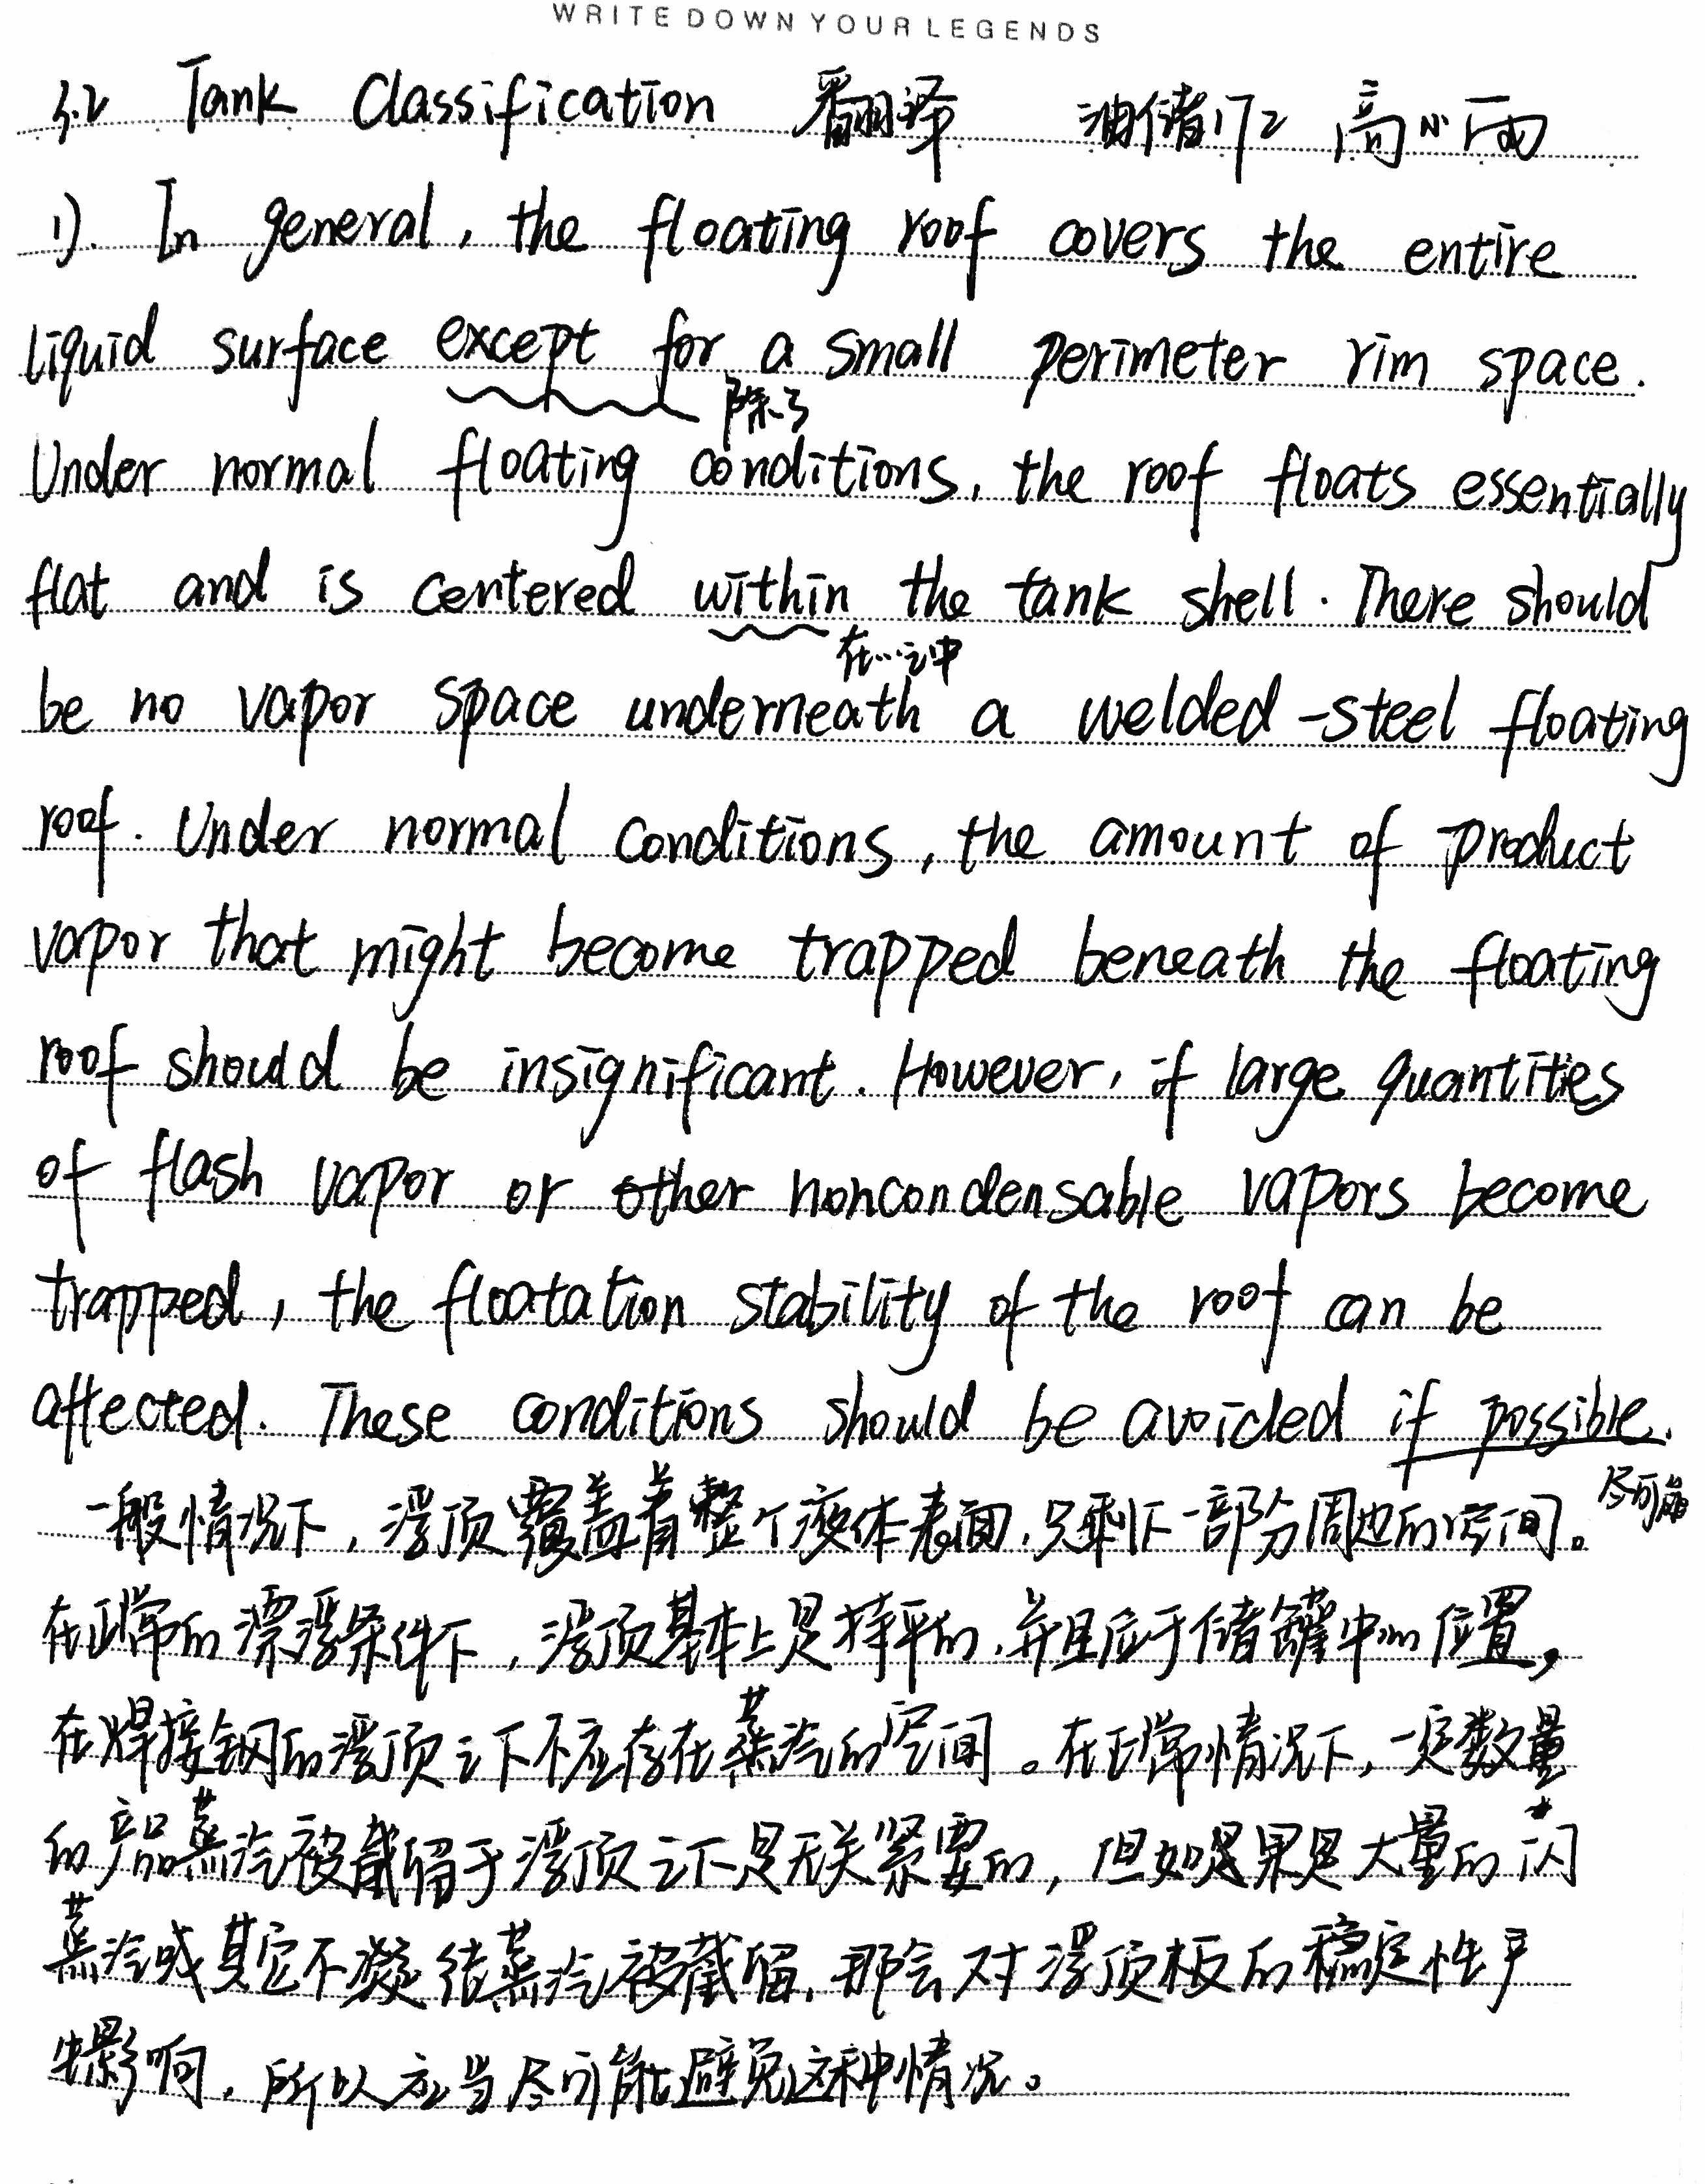 WRITE DOWN YOUR LEGENDS
3.2 Tank Classification 翻译 油储1712 高小雨
1). In general, the floating roof covers the entire
liquid surface except for a small perimeter rim space.
除了
Under normal floating conditions, the roof floats essentially
flat and is centered within the tank shell. There should
在…之中
be no vapor space underneath a welded-steel floating
roof. Under normal conditions, the amount of product
vapor that might become trapped beneath the floating
roof should be insignificant. However, if large quantities
of flash vapor or other noncondensable vapors become
trapped, the floatation stability of the roof can be
affected. These conditions should be avoided if possible.
尽可能
一般情况下，浮顶覆盖着整个液体表面，只剩下一部分周边的空间。
在正常的漂浮条件下，浮顶基本上是持平的，并且位于储罐中心位置，
在焊接钢的浮顶之下不应存在蒸汽的空间。在正常情况下，一定数量
的产品蒸汽被截留于浮顶之下是无关紧要的，但如果是大量的闪
蒸汽或其它不凝结蒸汽被截留，那会对浮顶板的稳定性产
生影响，所以应当尽可能避免这种情况。